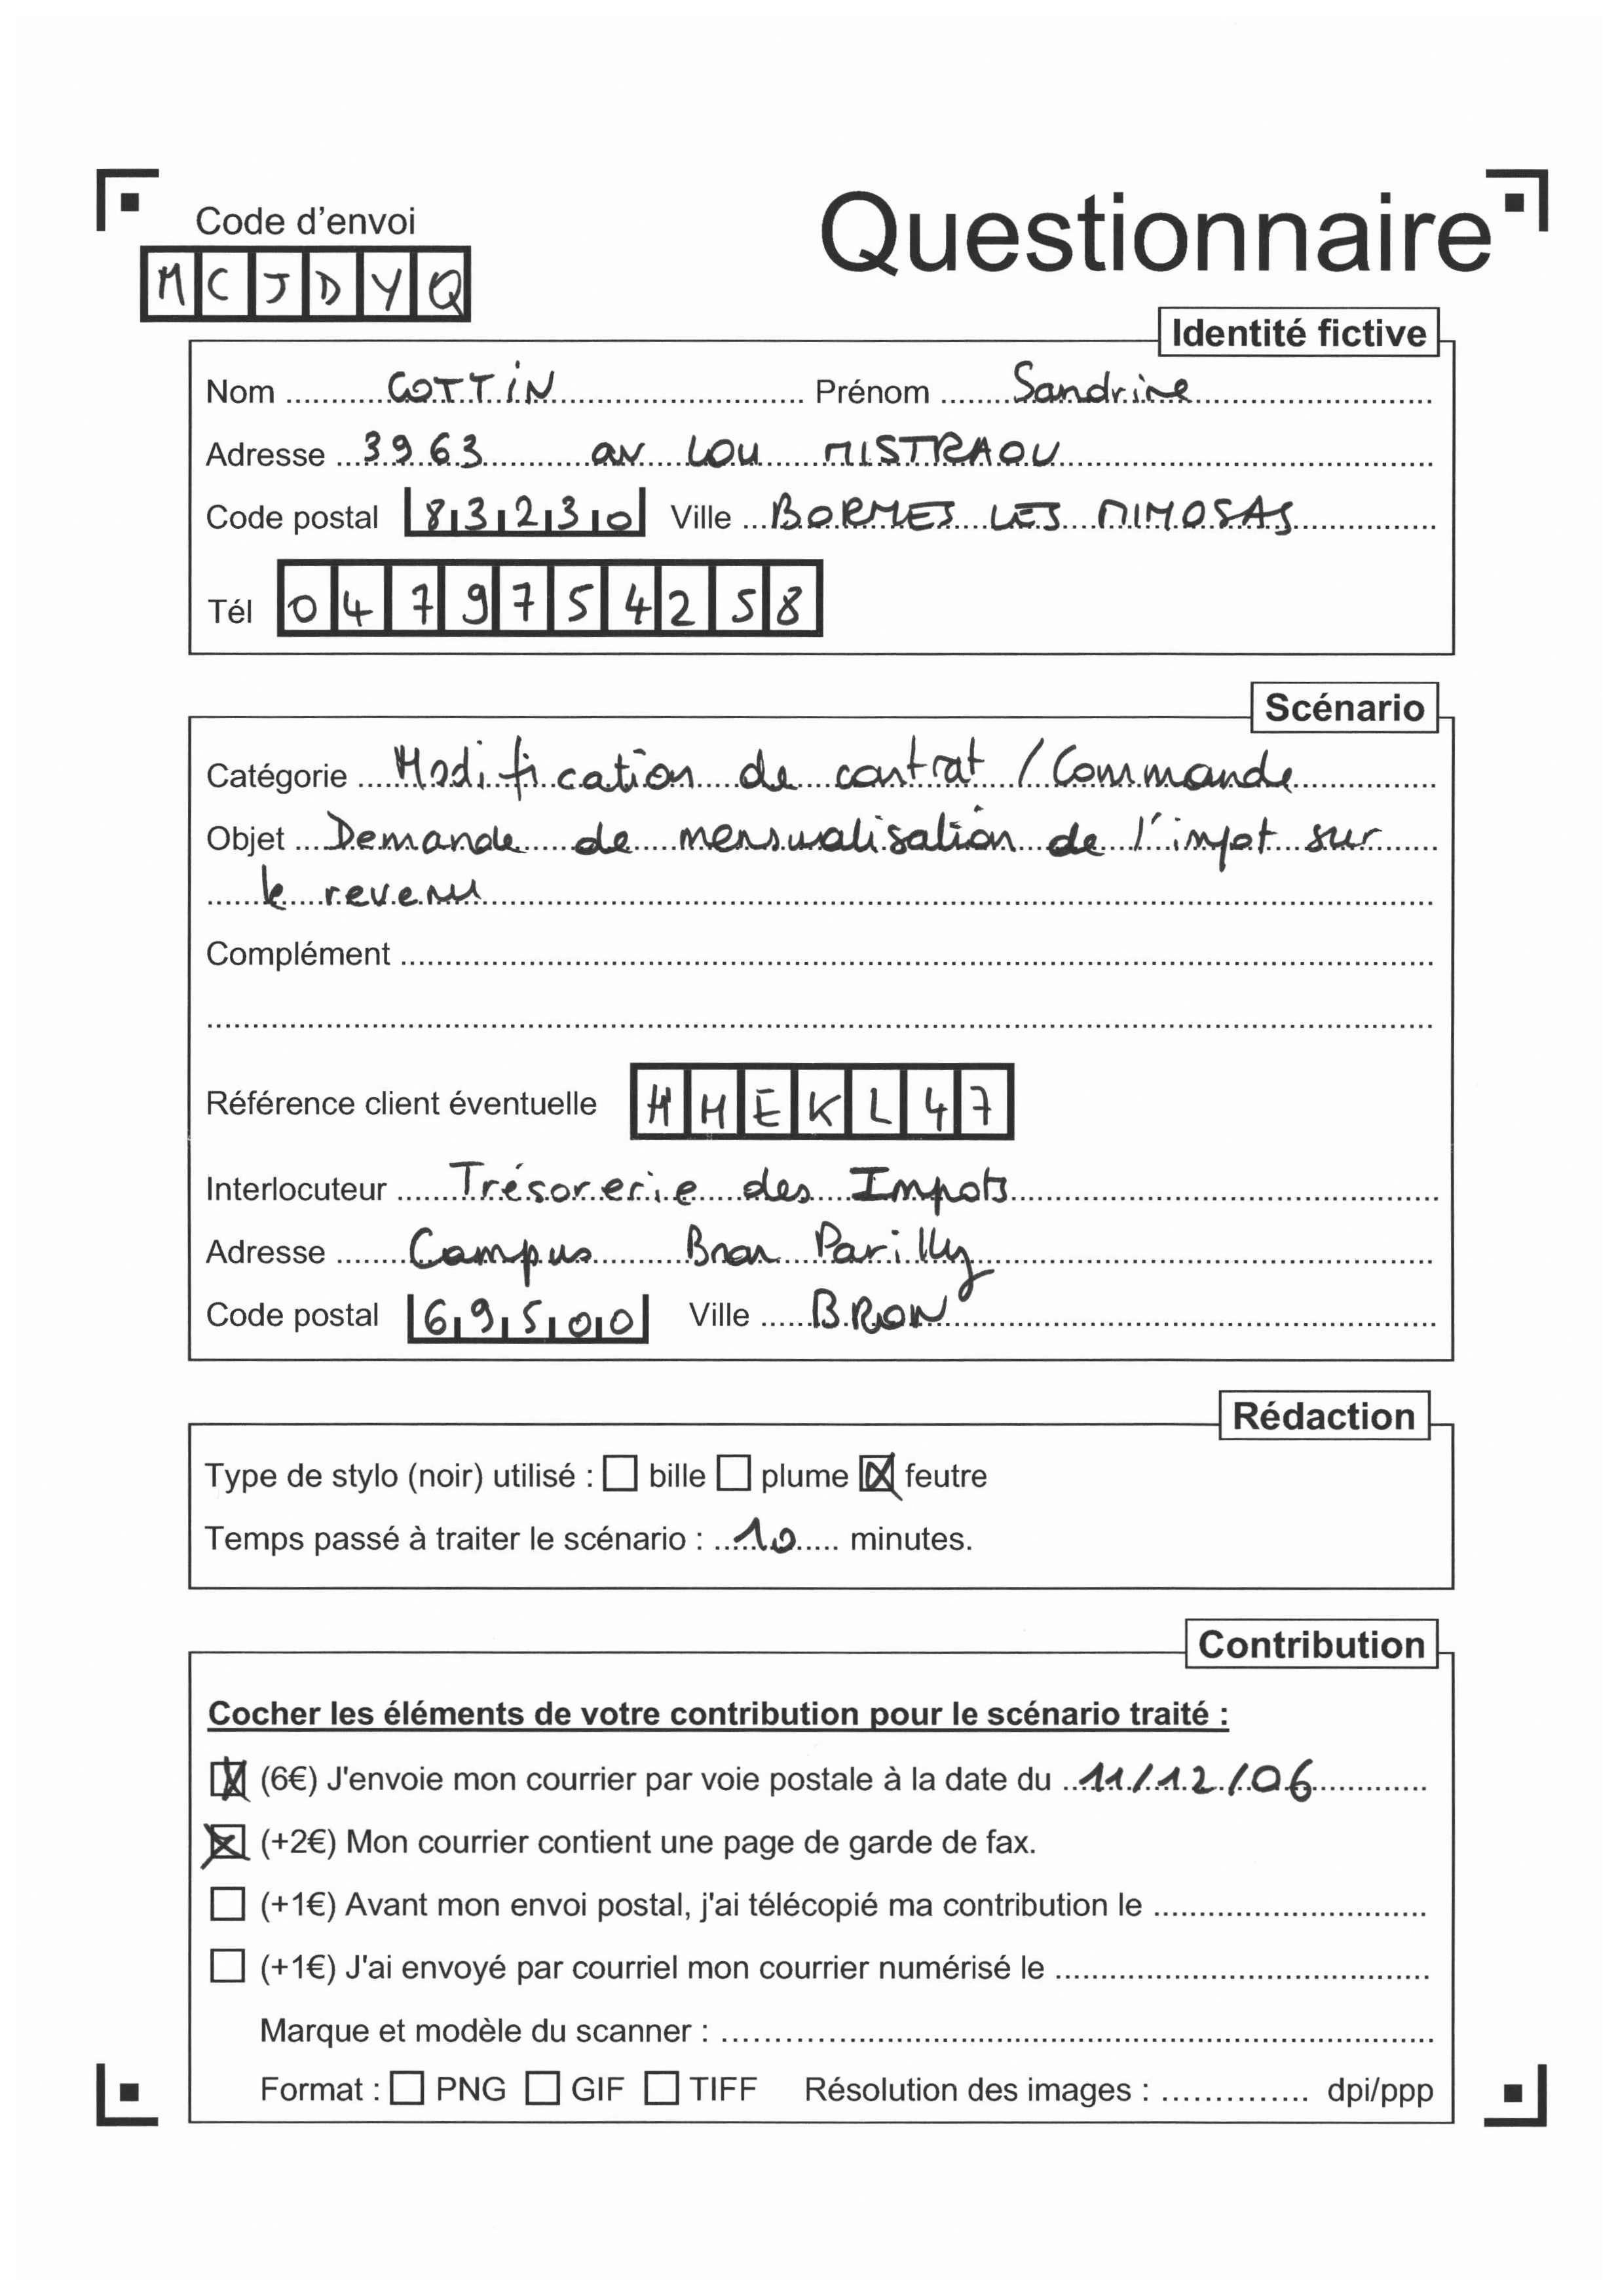 Code d'envoi
Questionnaire
MCJDYQ
Identité fictive
Nom COTTIN Prénom Sandrine
Adresse 3963 av LOU MISTRAOU
Code postal 83230 Ville BORMES LES MIMOSAS
Tél 0479754258
Scénario
Catégorie Modification de contrat / Commande
Objet Demande de mensualisation de l'impot sur
le revenu
Complément
Référence client éventuelle HMEKL47
Interlocuteur Trésorerie des Impots
Adresse Campus Bron Parilly
Code postal 69500 Ville BRON
Rédaction
Type de stylo (noir) utilisé : bille plume feutre
Temps passé à traiter le scénario : 10 minutes.
Contribution
Cocher les éléments de votre contribution pour le scénario traité :
(6€) J'envoie mon courrier par voie postale à la date du 11/12/06
(+2€) Mon courrier contient une page de garde de fax.
(+1€) Avant mon envoi postal, j'ai télécopié ma contribution le
(+1€) J'ai envoyé par courriel mon courrier numérisé le
Marque et modèle du scanner :
Format : PNG GIF TIFF Résolution des images : dpi/ppp